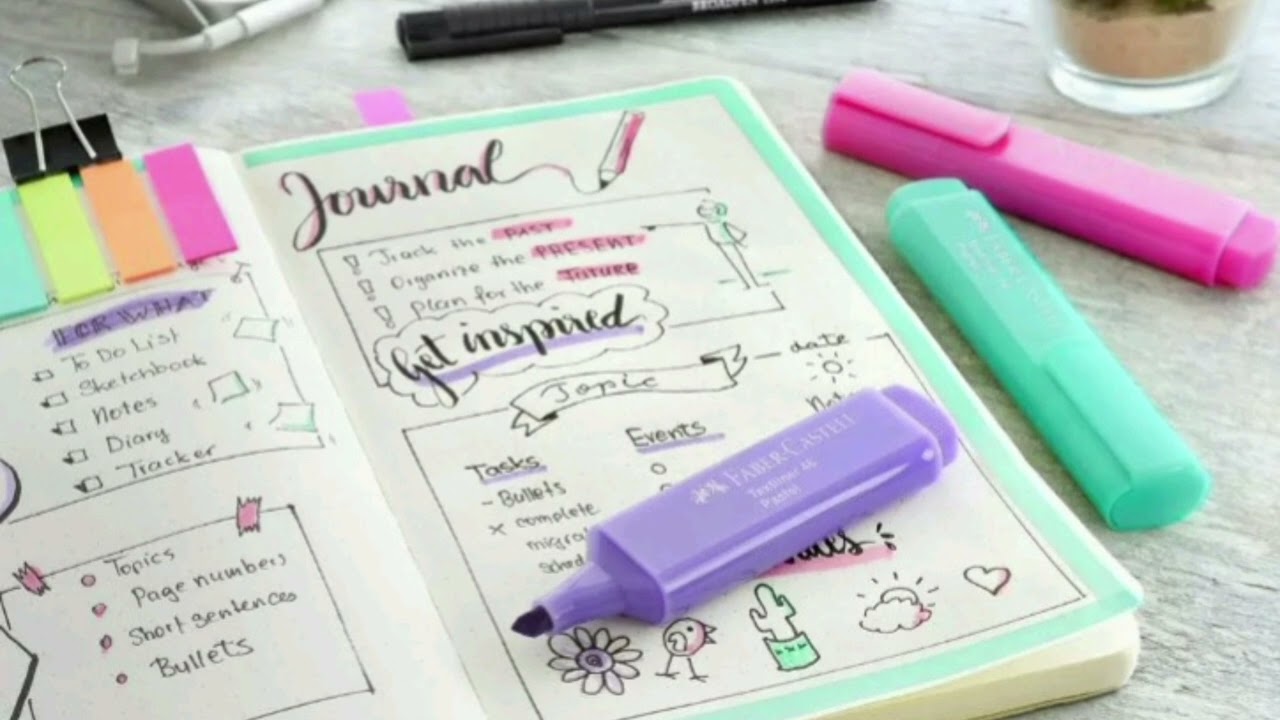 FOR WHAT
To Do List
Sketchbook
Notes
Diary
Tracker
Topics
Page numbers
Short sentences
Bullets
Journal
Track the PAST
Organize the PRESENT
Plan for the FUTURE
Get inspired
Topic
date
Tasks
- Bullets
x complete
Events
FABER-CASTELL
Textliner 46
Pastel